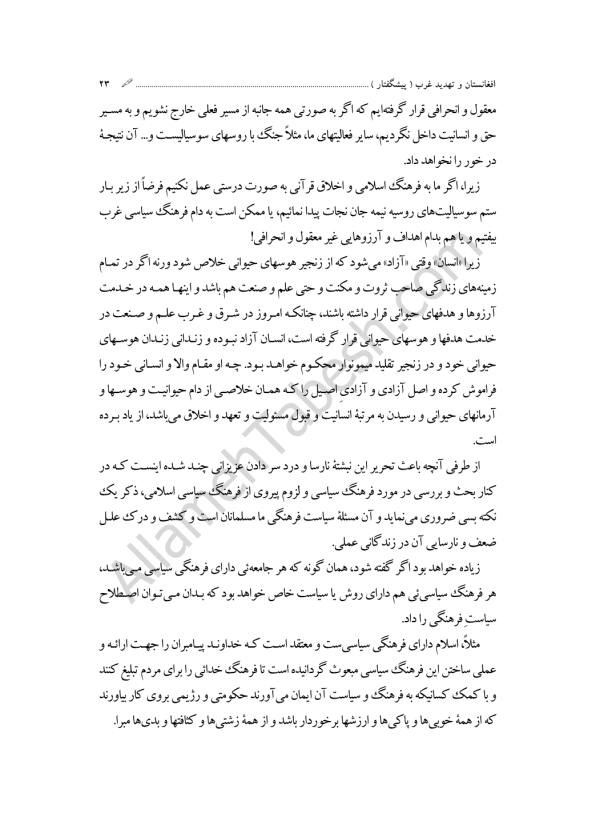 افغانستان و تهدید غرب ( پیشگفتار ) ........................................................................................... ۲۳
معقول و انحرافی قرار گرفته‌ایم که اگر به صورتی همه جانبه از مسیر فعلی خارج نشویم و به مسیر
حق و انسانیت داخل نگردیم، سایر فعالیتهای ما، مثلاً جنگ با روسهای سوسیالیست و... آن نتیجهٔ
در خور را نخواهد داد.
زیرا، اگر ما به فرهنگ اسلامی و اخلاق قرآنی به صورت درستی عمل نکنیم فرضاً از زیر بار
ستم سوسیالیت‌های روسیه نیمه جان نجات پیدا نمائیم، یا ممکن است به دام فرهنگ سیاسی غرب
بیفتیم و یا هم بدام اهداف و آرزوهایی غیر معقول و انحرافی!
زیرا «انسان» وقتی «آزاد» می‌شود که از زنجیر هوسهای حیوانی خلاص شود ورنه اگر در تمام
زمینه‌های زندگی صاحب ثروت و مکنت و حتی علم و صنعت هم باشد و اینها همه در خدمت
آرزوها و هدفهای حیوانی قرار داشته باشند، چنانکه امروز در شرق و غرب علم و صنعت در
خدمت هدفها و هوسهای حیوانی قرار گرفته است، انسان آزاد نبوده و زندانی زندان هوسهای
حیوانی خود و در زنجیر تقلید میمونوار محکوم خواهد بود. چه او مقام والا و انسانی خود را
فراموش کرده و اصل آزادی و آزادیِ اصیل را که همان خلاصی از دام حیوانیت و هوسها و
آرمانهای حیوانی و رسیدن به مرتبهٔ انسانیت و قبول مسئولیت و تعهد و اخلاق می‌باشد، از یاد برده
است.
از طرفی آنچه باعث تحریر این نبشتهٔ نارسا و درد سر دادن عزیزانی چند شده اینست که در
کنار بحث و بررسی در مورد فرهنگ سیاسی و لزوم پیروی از فرهنگ سیاسی اسلامی، ذکر یک
نکته بسی ضروری می‌نماید و آن مسئلهٔ سیاست فرهنگی ما مسلمانان است و کشف و درک علل
ضعف و نارسایی آن در زندگانی عملی.
زیاده خواهد بود اگر گفته شود، همان گونه که هر جامعه‌ئی دارای فرهنگی سیاسی می‌باشد،
هر فرهنگ سیاسی‌ئی هم دارای روش یا سیاست خاص خواهد بود که بدان می‌توان اصطلاح
سیاستِ فرهنگی را داد.
مثلاً، اسلام دارای فرهنگی سیاسی‌ست و معتقد است که خداوند پیامبران را جهت ارائه و
عملی ساختن این فرهنگ سیاسی مبعوث گردانیده است تا فرهنگ خدائی را برای مردم تبلیغ کنند
و با کمک کسانیکه به فرهنگ و سیاست آن ایمان می‌آورند حکومتی و رژیمی بروی کار بیاورند
که از همهٔ خوبی‌ها و پاکی‌ها و ارزشها برخوردار باشد و از همهٔ زشتی‌ها و کثافتها و بدی‌ها مبرا.
AllamehTabesh.com